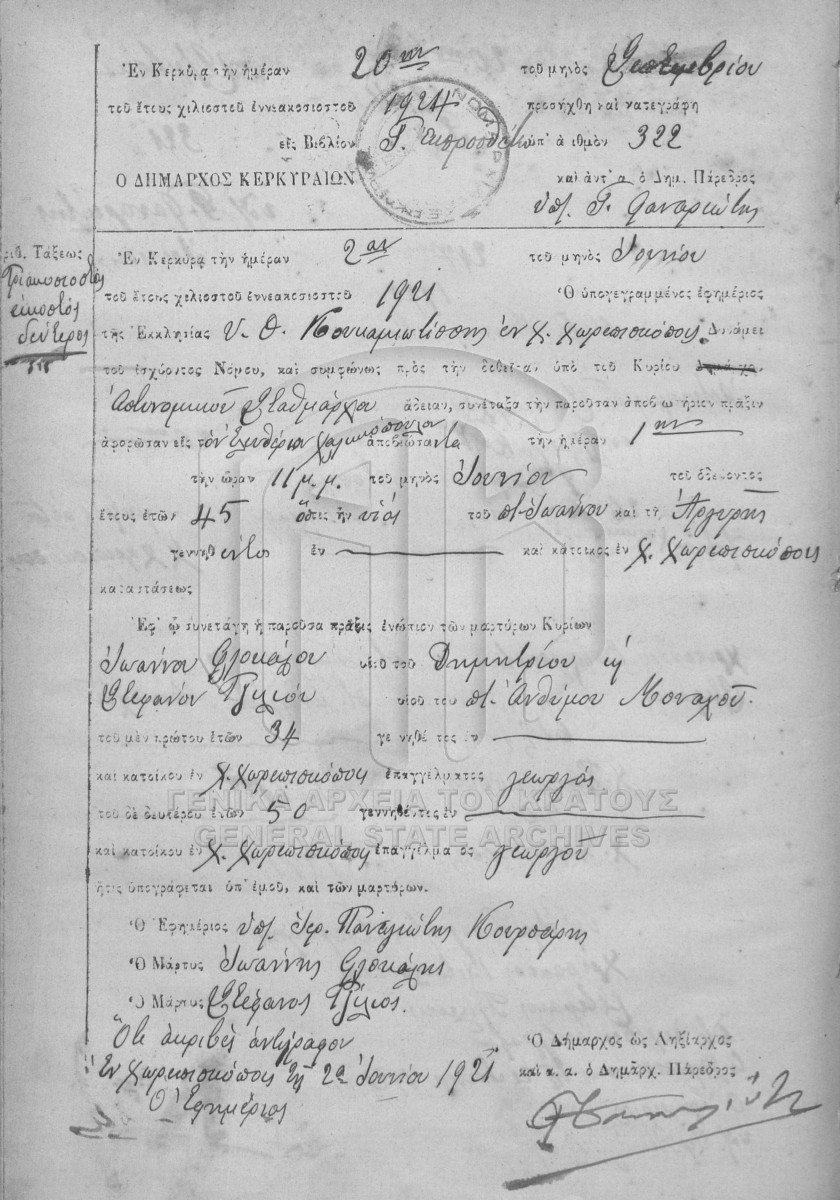 Ἐν Κερκύρᾳ τὴν ἡμέραν 20ην τοῦ μηνὸς Σεπτεμβρίου
τοῦ ἔτους χιλιοστοῦ ἐννεακοσιοστοῦ 1924 προσήχθη καὶ κατεγράφη
εἰς Βιβλίον Γ. ὑπ' ἀ ιθμὸν 322
Ο ΔΗΜΑΡΧΟΣ ΚΕΡΚΥΡΑΙΩΝ καὶ ἀντ' α. ὁ Δημ. Πάρεδρος
ὑπ. Γ. Φαναριώτης
ριθ. Τάξεως
Τριακοσιοστὸς
εἰκοστὸς
δεύτερος
Ἐν Κερκύρᾳ τὴν ἡμέραν 2αν τοῦ μηνὸς Ἰουνίου
τοῦ ἔτους χιλιοστοῦ ἐννεακοσιοστοῦ 1921 Ὁ ὑπογεγραμμένος ἐφημέριος
τῆς Ἐκκλησίας Υ. Θ. ἐν χ. Χωρεπισκόποις Δυνάμει
τοῦ ἰσχύοντος Νόμου, καὶ συμφώνως πρὸς τὴν δοθεῖσαν ὑπὸ τοῦ Κυρίου
Ἀστυνομικοῦ Σταθμάρχου ἄδειαν, συνέταξα τὴν παροῦσαν ἀποβ ωτήριον πρᾶξιν
ἀφορῶσαν εἰς τὸν Ἐλευθέριον Χαλικιόπουλον ἀποβιώσαντα τὴν ἡμέραν 1ην
τὴν ὥραν 11 μ.μ. τοῦ μηνὸς Ἰουνίου τοῦ ὁδεύοντος
ἔτους ἐτῶν 45 ὅστις ἦν υἱὸς τοῦ π. Ἰωάννου καὶ τῆς Ἀργυρῆς
γεννηθέντα ἐν καὶ κάτοικος ἐν χ. Χωρεπισκόποις
καταστάσεως
Ἐφ' ᾧ συνετάγη ἡ παροῦσα πρᾶξις ἐνώπιον τῶν μαρτύρων Κυρίων
Ἰωάννου υἱοῦ τοῦ Δημητρίου κ
Στεφάνου Τζίλιου υἱοῦ του π. Ἀνθίμου Μοναχοῦ.
τοῦ μὲν πρώτου ἐτῶν 34 γε νηθέ τος ἐν
καὶ κατοίκου ἐν χ. Χωρεπισκόποις ἐπαγγέλματος γεωργός
ΓΕΝΙΚΑ ΑΡΧΕΙΑ ΤΟΥ ΚΡΑΤΟΥΣ
τοῦ δὲ δευτέρου ἐτῶν 50 γεννηθέντος ἐν
GENERAL STATE ARCHIVES
καὶ κατοίκου ἐν χ. Χωρεπισκόποις ἐπαγγέλμα ος γεωργοῦ
ἥτις ὑπογράφεται ὑπ' ἐμοῦ, καὶ τῶν μαρτύρων.
Ὁ Ἐφημέριος ὑπ. Ἱερ. Παναγιώτης Κουρσάρης
Ὁ Μάρτυς Ἰωάννης
Ὁ Μάρτυς Στέφανος Τζίλιος.
Ὅτι ἀκριβὲς ἀντίγραφον
Ἐν Χωρεπισκόποις τῇ 2α Ἰουνίου 1921
Ὁ Ἐφημέριος
Ὁ Δήμαρχος ὡς Ληξίαρχος
καὶ α. α. ὁ Δημαρχ. Πάρεδρος